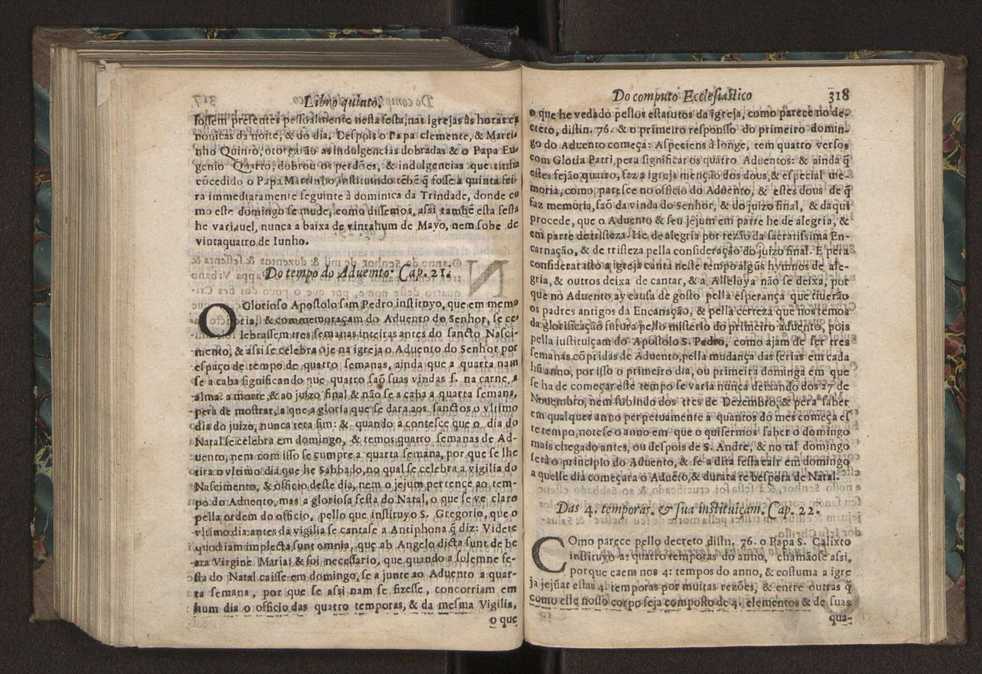 Libro quinto.
fossem presentes pessoalmente nesta festa, nas igrejas às horas ca
nonicas da noite, & do dia. Despois o Papa Clemente, & Marti
nho Quinto, otorgarão as indulgencias dobradas & o Papa Eu
genio Quarto, dobrou os perdões, & indulgencias que tinha
cōcedido o Papa Martinho, instituindo tēbē q̃ fosse a quinta fei
ra immediatamente seguinte á dominica da Trindade, donde co
mo este domingo se mude, como dissemos, assi tambē esta festa
he variauel, nunca a baixa de vintahum de Mayo, nem sobe de
vintaquatro de Iunho.
Do tempo do Aduento. Cap. 21.
O Glorioso Apostolo sam Pedro instituyo, que em memo
ria, & commemoraçam do Aduento do Senhor, se ce
lebrassem tres semanas inteiras antes do sancto Nasci-
mento, & assi se celebra oje na igreja o Aduento do Senhor por
espaço de tempo de quatro semanas, ainda que a quarta nam
se a caba significando que quatro saõ suas vindas s. na carne, a
alma: a morte, & ao juizo final & não se a caba a quarta semana,
pera de mostrar, a que a gloria que se dara aos sanctos o vltimo
dia do juizo, nunca tera fim: & quando a contesce que o dia do
Natal se celebra em domingo, & temos quatro semanas de Ad-
uento, nem com isso se cumpre a quarta semana, por que se lhe
tira o vltimo dia que he Sabbado, no qual se celebra a vigilia do
Nascimento, & officio deste dia, nem o jejum pertence ao tem-
po do Aduento, mas a gloriosa festa do Natal, o que se ve claro
pella ordem do officio, pello que instituyo S. Gregorio, que o
vltimo dia antes da vigilia se cantase a Antiphona q̃ diz: Videte
quoniam impleta sunt omnia, que ab Angelo dicta sunt de be
ata Virgine Maria: & foi necessario, que quando a solemne fe-
sta do Natal caisse em domingo, se a junte ao Aduento a quar-
ta semana, por que se assi nam se fizesse, concorriam em
hum dia o officio das quatro temporas, & da mesma Vigilia,
o que
Do computo Ecclesiastico 318
o que he vedado pellos estatutos da igreja, como parece no de-
creto, distin. 76. & o primeiro responsso do primeiro domin-
go do Aduento começa: Aspeciens à longe, tem quatro versos
com Gloria Patri, pera significar os quatro Aduentos: & ainda q̃
estes sejão quatro, faz a igreja menção dos dous, & especial me-
moria, como paresce no officio do Aduento, & estes dous de q̃
faz memoria, saõ da vinda do Senhor, & do juizo final, & daqui
procede, que o Aduento & seu jejum em parte he de alegria, &
em parte de tristeza. He de alegria por rezão da sacratissima En-
carnação, & de tristeza pella consideração do juizo final. E pera
considerar isto a igreja canta neste tempo algũs hymnos de ale-
gria, & outros deixa de cantar, & a Alleloya não se deixa, por
que no Aduento ay causa de gosto pella esperança que tiuerão
os padres antigos da Encarnação, & pella certeza que nos temos
da glorificação futura pello misterio do primeiro aduento, pois
pella instituiçam do Apostolo S. Pedro, como ajam de ser tres
semanas cōpridas de Aduento, pella mudança das ferias em cada
hū anno, por isso o primeiro dia, ou primeira dominga em que
se ha de começar este tempo se varia nunca deixando dos 27 de
Nouembro, nem subindo dos tres de Dezembro, & pera saber
em qualquer anno perpetuamente a quantos do mes começa es
te tempo, note se o anno em que o quisermos saber o domingo
mais chegado antes, ou despois de S. Andre, & no tal domingo
sera o principio do Aduento, & se a dita festa cair em domingo
a quelle dia começara o Aduēto, & durara te bespora de Natal.
Das 4. temporas, & sua instituiçam. Cap. 22.
COmo parece pello decreto distin. 76. o Papa S. Calixto
instituyo as quatro temporas do anno, chamāose assi,
porque caem nos 4: tempos do anno, & costuma a igre
ja jejūar estas 4. temporas por muitas rezões, & entre outras q̃
como este nosso corpo seja composto de 4. elementos & de suas
qua-